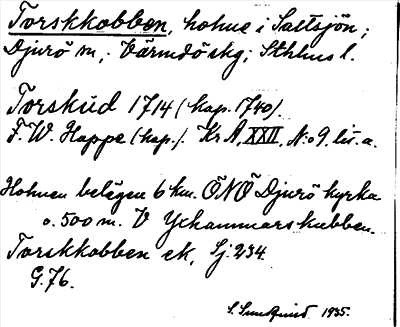 Torskkobben, holme i Saltsjön;
Djurö sn; Värmdö skg; Sthlms l.
Torskud 1714 (kop. 1740).
F. W. Hoppe (kop.). Kr A, XXII, N:o 9, lit. a.
Holmen belägen 6 km. ÖNÖ Djurö kyrka
o. 500 m. V Yxhammarskubben.
Torskkobben ek, Sj. 234
G. 76.
S. Sundquist 1935.